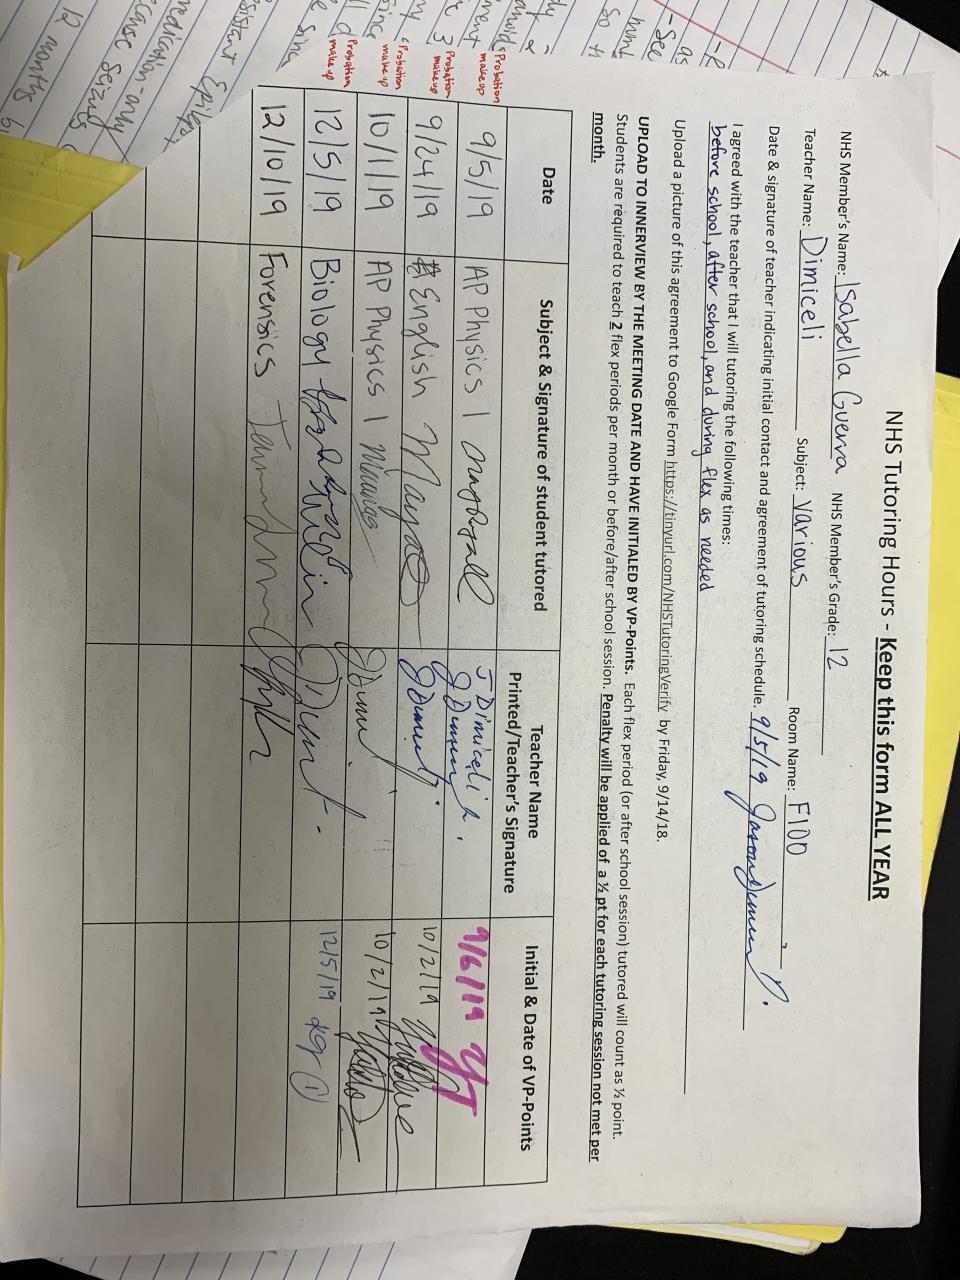 NHS Tutoring Hours - Keep this form ALL YEAR
NHS Member's Name: Isabella Guerra NHS Member's Grade: 12
Teacher Name: Dimiceli Subject: Various Room Name: F100
Date & signature of teacher indicating initial contact and agreement of tutoring schedule. 9/5/19
I agreed with the teacher that I will tutoring the following times:
before school, after school, and during flex as needed
Upload a picture of this agreement to Google Form https://tinyurl.com/NHSTutoringVerify by Friday, 9/14/18.
UPLOAD TO INNERVIEW BY THE MEETING DATE AND HAVE INITIALED BY VP-POINTS. Each flex period (or after school session) tutored will count as ½ point.
Students are required to teach 2 flex periods per month or before/after school session. Penalty will be applied of a ½ pt for each tutoring session not met per
month.
Date Subject & Signature of student tutored Teacher Name Printed/Teacher's Signature Initial & Date of VP-Points
Probation makeup 9/5/19 AP Physics 1 J Dimiceli 9/6/19
Probation makeup 9/24/19 English 10/2/19
Probation makeup 10/1/19 AP Physics 1 10/2/19
Probation makeup 12/5/19 Biology 12/5/19
12/10/19 Forensics
12 months